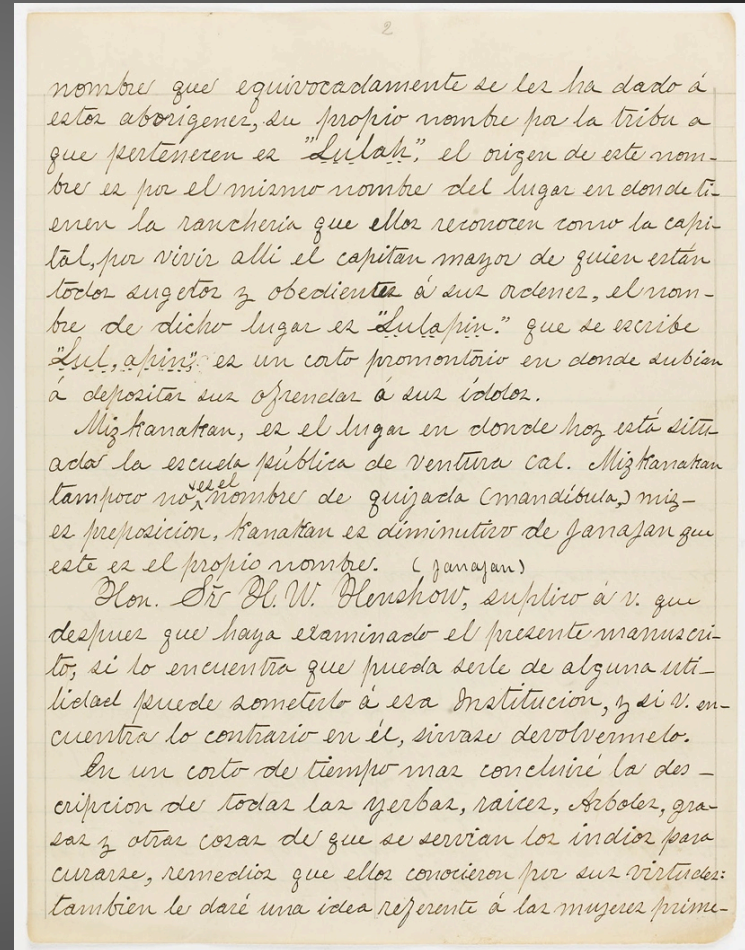 2
nombre que equivocadamente se les ha dado á
estos aborígenes, su propio nombre por la tribu a
que pertenecen es "Lulah", el origen de este nom-
bre es por el mismo nombre del lugar en donde ti-
enen la rancheria que ellos reconocen como la capi-
tal, por vivir alli el capitan mayor de quien están
todos sugetos y obedientes á sus ordenes, el nom-
bre de dicho lugar es "Lulapin." que se escribe
"Lul,apin", es un corto promontorio en donde subian
á depositar sus ofrendas á sus ídolos.
Mizkanakan, es el lugar en donde hoy está situ-
ada la escuela pública de Ventura Cal. Mizkanakan
tampoco no es el nombre de quijada (mandíbula,) miz-
es preposición, kanakan es diminutivo de Janajan que
este es el propio nombre. (Janajan)
Hon. Sr. H. W. Henshow, suplico á v. que
despues que haya examinado el presente manuscri-
to, si lo encuentra que pueda serle de alguna uti-
lidad puede someterlo á esa Institucion, y si v. en-
cuentra lo contrario en él, sirvase devolvermelo.
En un corto de tiempo mas concluiré la des-
cripcion de todas las yerbas, raices, Arboles, gra-
sas y otras cosas de que se servian los indios para
curarse, remedios que ellos conocieron por sus virtudes:
tambien le daré una idea referente á las mujeres prime-